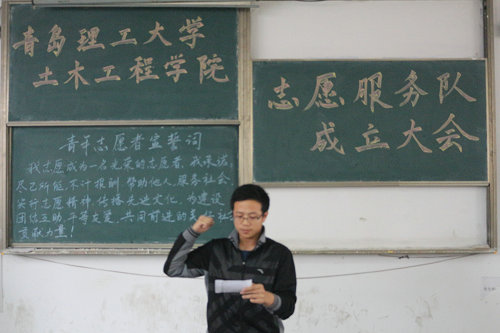 青岛理工大学
土木工程学院
志愿服务队
成立大会
青年志愿者宣誓词
我志愿成为一名光荣的志愿者,我承诺,
尽己所能,不计报酬,帮助他人,服务社会
实行志愿精神,传播先进文化,为建设
团结互助,平等友爱,共同前进的美
贡献力量!